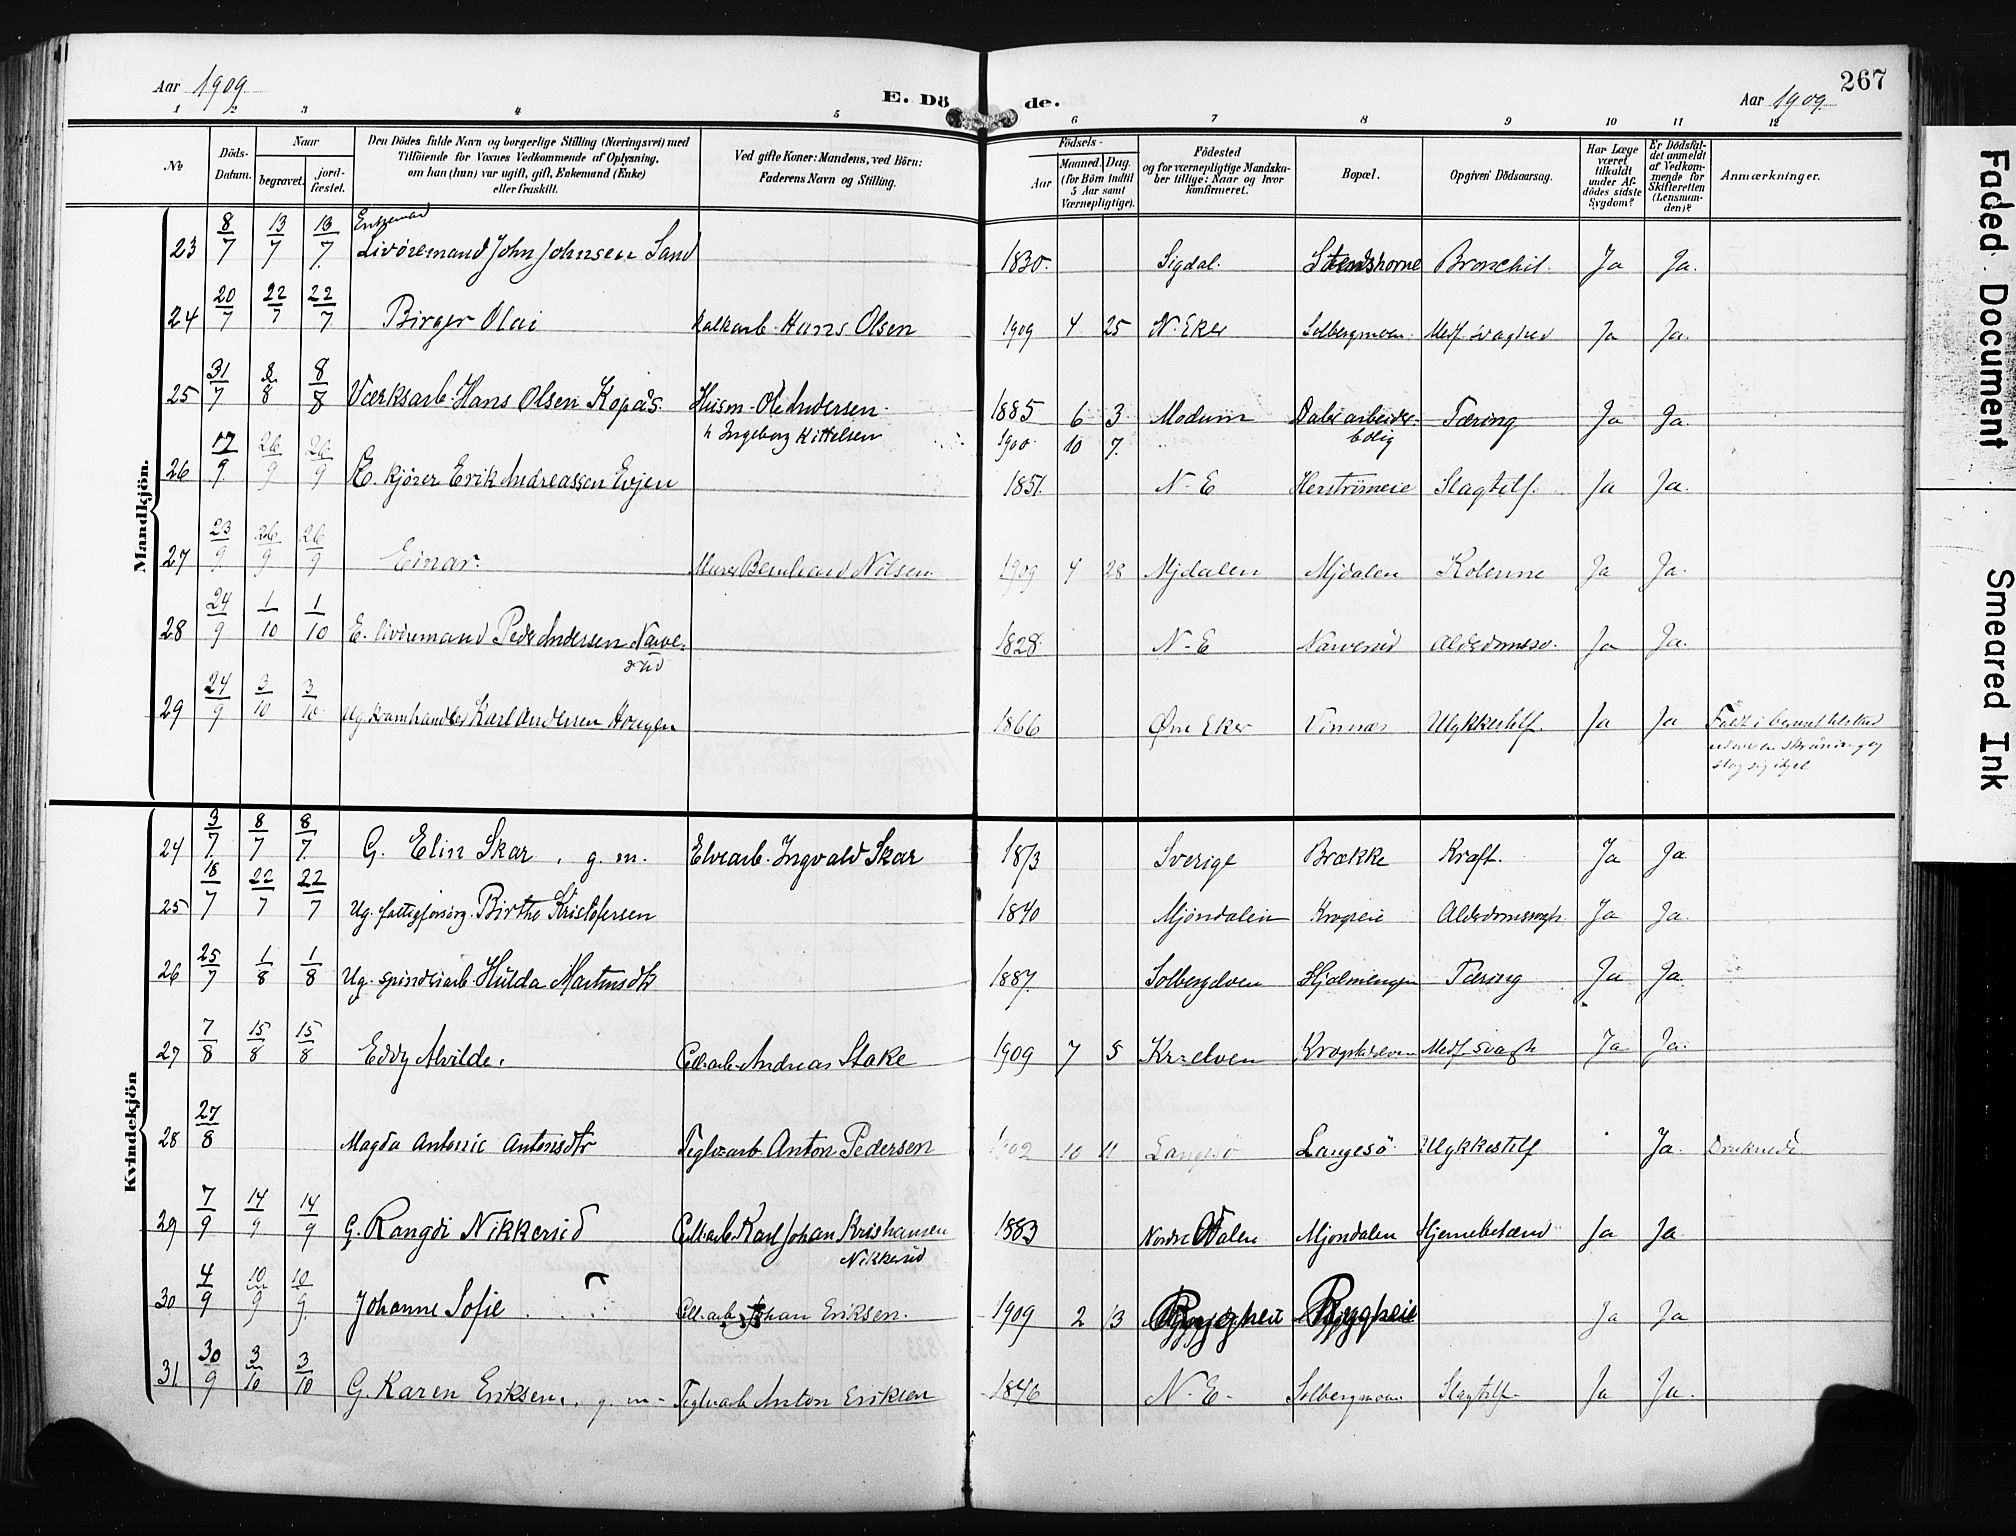 Aar 1909
E. Dö de.
Aar 1909
267
1 2 3 4 5 6 7 8 9 10 11 12
No
Döds-Datum.
Naar
begravet.
jord-fæstet.
Den Dödes fulde Navn og borgerlige Stilling (Næringsvei) med
Tilföiende for Voxnes Vedkommende af Oplysning,
om han (hun) var ugift, gift, Enkemand (Enke)
eller fraskilt.
Ved gifte Koner: Mandens, ved Börn:
Faderens Navn og Stilling.
Födsels-
Aar
Maaned.
Dag.
(for Börn indtil
5 Aar samt
Værnepligtige).
Födested
og for værnepligtige Mandska-
ber tillige: Naar og hvor
konfirmeret.
Bopæl.
Opgiven Dödsaarsag.
Har Læge
været
tilkaldt
under Af-
dödes sidste
Sygdom?
Er Dödsfal-
det anmeldt
af Vedkom-
mende for
Skifteretten
(Lensman-
den)?
Anmærkninger.
Mandkjön.
23 8/7 13/7 13/7 Enkemand Livöremand John Johnsen Sand 1830. Sigdal. Bronchit. Ja Ja.
24 20/7 22/7 22/7 Birger Olai Kalkarb. Hans Olsen 1909 4 25 N. Eker Solbergmoen. Medf. svaghed Ja Ja.
25 31/7 8/8 8/8 Værksarb. Hans Olsen Kopås. Husm. Ole Andersen. 1885 6 3 Modum arbeider- Tæring Ja Ja
h Ingeborg Kittelsen 1900 10 7. bolig
26 17/9 26/9 26/9 E. kjörer Erik Andreassen Evjen 1851. N. E Herströmeie Slagtilf. Ja Ja.
27 23/9 26/9 26/9 Einar. Murer Bernhard Nilsen. 1909 4 28 Mjdalen Mjdalen Kolerine Ja Ja.
28 24/9 1/10 1/10 E. livöremand Peder Andersen Narve- 1828. N. E Narverud Alderdomssv. Ja Ja.
rud
29 24/9 3/10 3/10 Ug. kramhandler Karl Andersen Hougen 1866 Øvre Eker Vinnæs Ulykkestilf. Ja Ja Faldt i beruset tilstand
udover en skråning og
slog sig ihjel
Kvindekjön
24 3/7 8/7 8/7 G. Elin Skar, g. m. Elvearb. Ingvald Skar 1873 Sverige Brække Kræft. Ja Ja
25 18/7 22/7 22/7 Ug. fattigforsörg. Birthe Kristofersen 1840 Mjöndalen Krogseie Ja Ja.
26 25/7 1/8 1/8 Ug. spinderiarb. Hulda Martinsdtr 1887. Solbergelven Hjelmengen Tæring Ja Ja.
27 7/8 15/8 15/8 Eddy Alvilde. Cell.arb. Andreas Stake 1909 7 5 Kr.elven Medf. svagh Ja Ja.
28 27/8 Magda Antonie Antonsdtr Teglv.arb. Anton Pedersen 1902 10 11 Langesö Langesö Ulykkestilf Ja. Druknede
29 7/9 14/9 14/9 G. Rangdi Nikkerud Cell.arb. Karl Johan Kristiansen 1883 Nordre Dalen Mjöndalen Hjernebetænd Ja Ja.
Nikkerud
30 4/9 10/9 10/9 Johanne Sofie Cell.arb. Johan Eriksen. 1909 2 13 Ryggheie Ryggheie Ja Ja
31 30/9 3/10 3/10 G. Karen Eriksen, g. m. Teglv.arb Anton Eriksen 1846 N. E. Solbergmoen Slagtilf. Ja Ja.
Faded Document
Smeared Ink